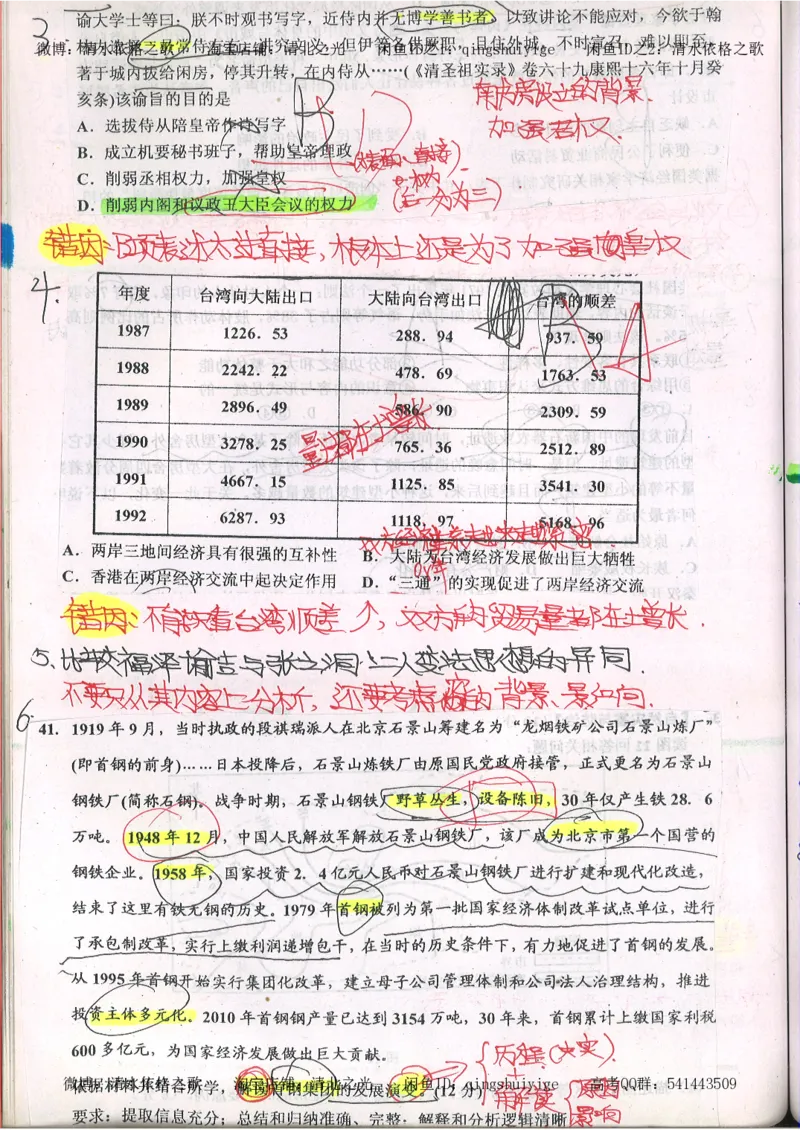 3.
谕大学士等曰：朕不时观书写字，近侍内并无博学善书者，以致讲论不能应对，今欲于翰
微博：清水依格之歌 淘宝店铺：清水之光 闲鱼ID之1：qingshuiyige 闲鱼ID之2：清水依格之歌
著于城内拨给闲房，停其升转，在内侍从……(《清圣祖实录》卷六十九康熙十六年十月癸
亥条)该谕旨的目的是
南书房设立的背景.
加强君权
A．选拔侍从陪皇帝作诗写字
B
B．成立机要秘书班子，帮助皇帝理政
(对表面、直接)
C．削弱丞相权力，加强皇权
D．削弱内阁和议政王大臣会议的权力
(一分为三)
错因：B项表述太过直接，根本上还是为了加强皇权
4.
年度 台湾向大陆出口 大陆向台湾出口 台湾的顺差
1987 1226．53 288．94 937．59
1988 2242．22 478．69 1763．53
1989 2896．49 586．90 2309．59
1990 3278．25 765．36 2512．89
量都在上增长
1991 4667．15 1125．85 3541．30
1992 6287．93 1118．97 5168．96
A．两岸三地间经济具有很强的互补性 B．大陆为台湾经济发展做出巨大牺牲
C．香港在两岸经济交流中起决定作用 D．“三通”的实现促进了两岸经济交流
08年
错因：不能只看台湾顺差个，双方的贸易量都在上增长.
5、比较福泽谕吉与张之洞二人变法思想的异同.
不要只从其内容上分析，还要考虑的背景、影响.
6.
41. 1919年9月，当时执政的段祺瑞派人在北京石景山筹建名为“龙烟铁矿公司石景山炼厂”
(即首钢的前身)……日本投降后，石景山炼铁厂由原国民党政府接管，正式更名为石景山
钢铁厂(简称石钢)。战争时期，石景山钢铁厂野草丛生，设备陈旧，30年仅产生铁28．6
万吨。1948年12月，中国人民解放军解放石景山钢铁厂，该厂成为北京市第一个国营的
钢铁企业。1958年，国家投资2．4亿元人民币对石景山钢铁厂进行扩建和现代化改造，
结束了这里有铁无钢的历史。1979年首钢被列为第一批国家经济体制改革试点单位，进行
了承包制改革，实行上缴利润递增包干，在当时的历史条件下，有力地促进了首钢的发展。
从1995年首钢开始实行集团化改革，建立母子公司管理体制和公司法人治理结构，推进
投资主体多元化。2010年首钢钢产量已达到3154万吨，30年来，首钢累计上缴国家利税
600多亿元，为国家经济发展做出巨大贡献。
历程(史实).
+
解释
原因
影响
微博：清水依格之歌 淘宝店铺：清水之光 闲鱼ID：qingshuiyige 高考QQ群：541443509
依据材料并结合所学，解读首钢集团的发展演变。(12分)
要求：提取信息充分；总结和归纳准确、完整；解释和分析逻辑清晰